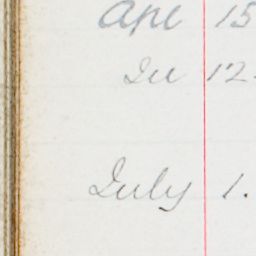 Apl 15
Je 12.
July 1.